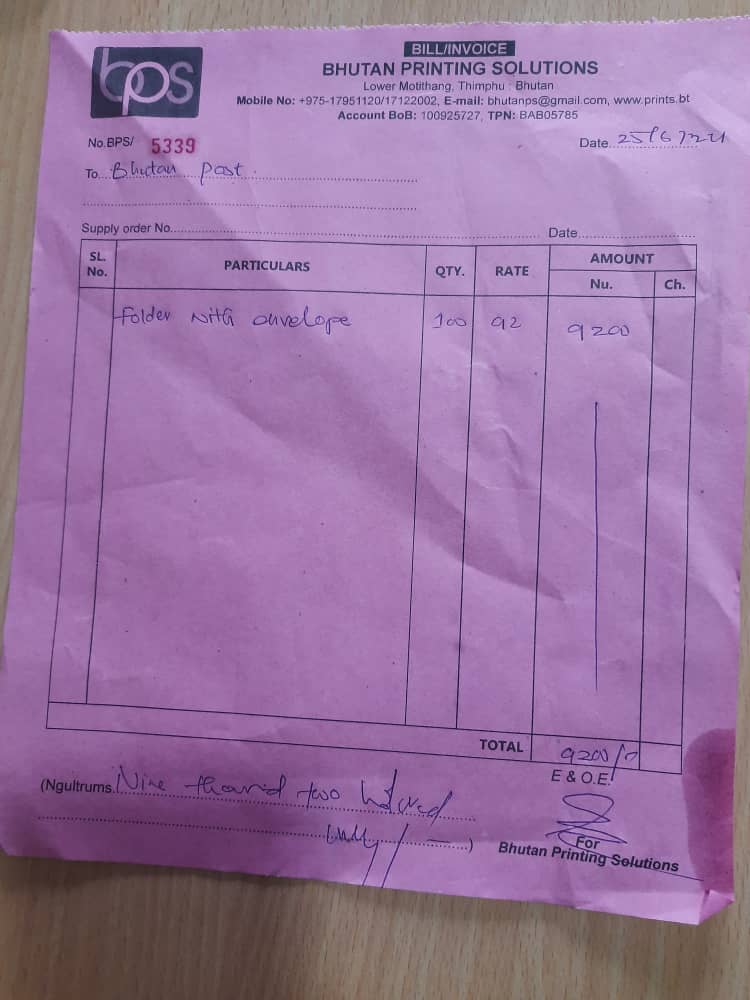 bps
BILL/INVOICE
BHUTAN PRINTING SOLUTIONS
Lower Motithang, Thimphu : Bhutan
Mobile No: +975-17951120/17122002, E-mail: bhutanps@gmail.com, www.prints.bt
Account BoB: 100925727, TPN: BAB05785
No.BPS/ 5339
Date
To Bhutan post.
Supply order No. Date
SL. No. PARTICULARS QTY. RATE AMOUNT
Nu. Ch.
Folder with envelope 100 92 9200
TOTAL 9200/
E & O.E.
(Ngultrums Nine thousand two hundred
only/-)
For
Bhutan Printing Solutions